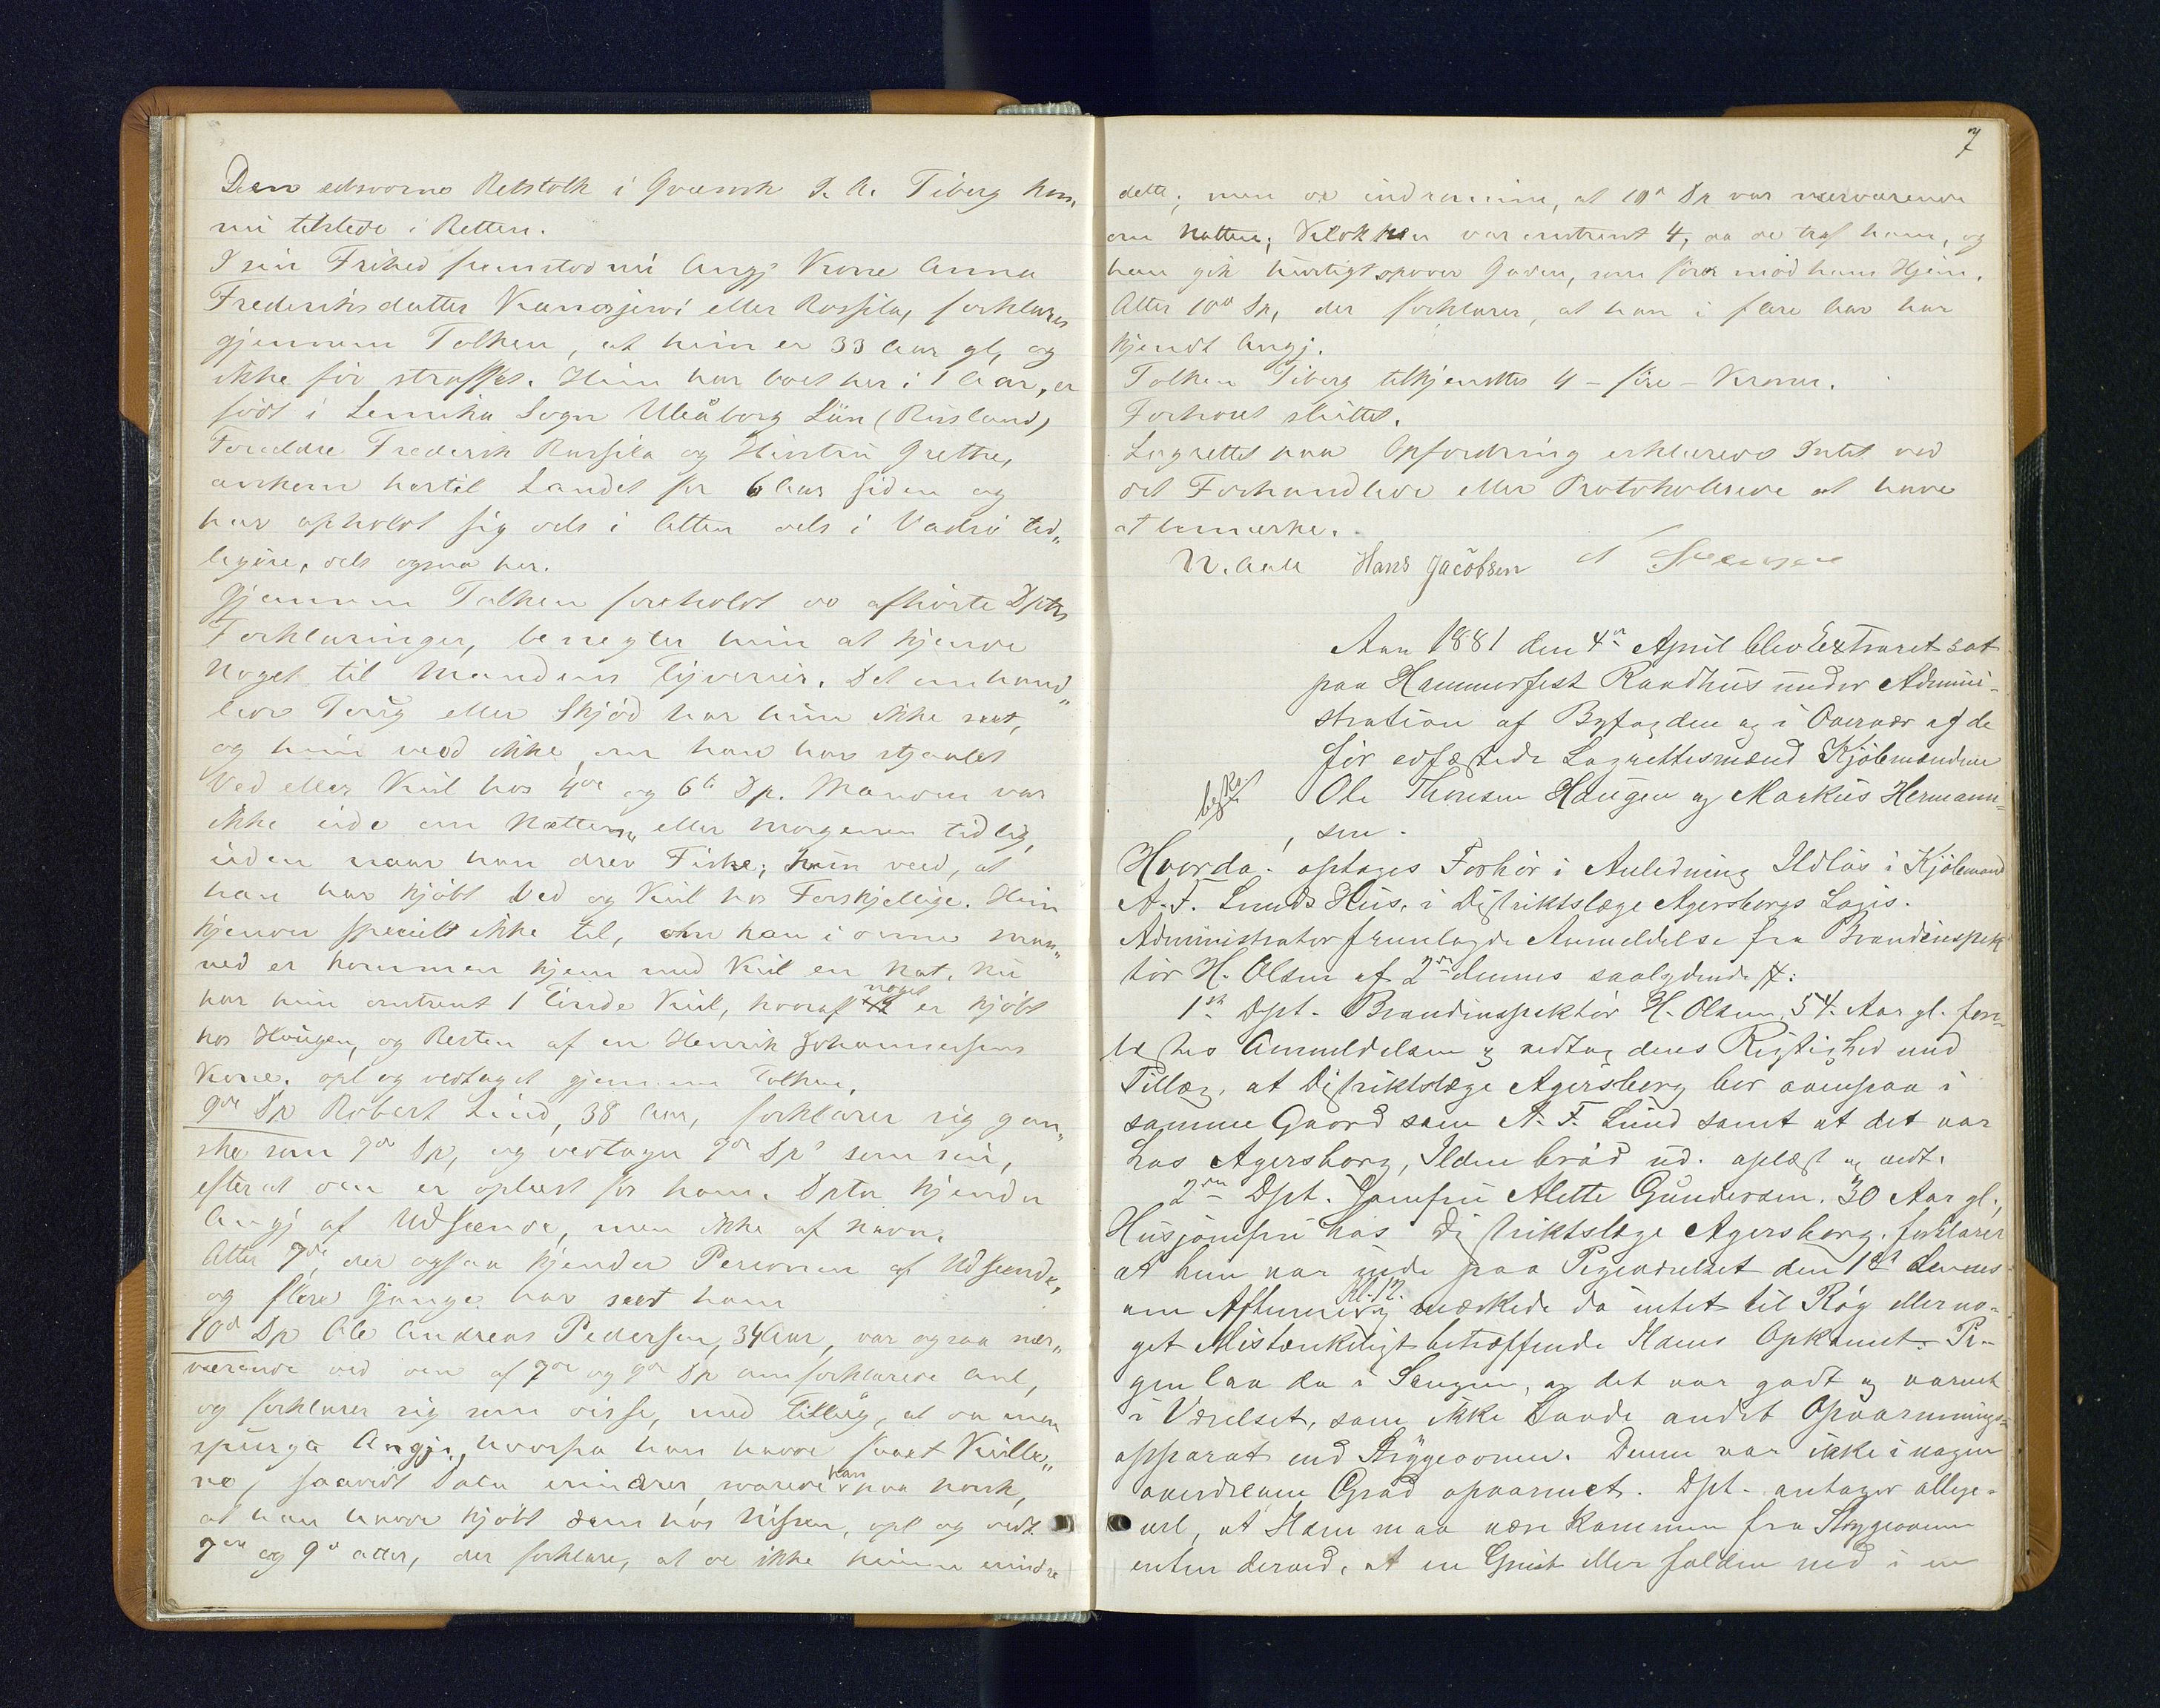 Den edsvorne Retstolk i Qvænsk P. A. Tiberg kom
nu tilstede i Retten.
I sin Frihed fremstod nu Angj Kone Anna
Frederiksdatter Kangjervi eller Rossila, forklarer
gjennem Tolken, at hun er 33 Aar gl, og
ikke før straffet. Hun har boet her i 1 Aar, er
født i Lemika Sogn Uleåborg Län (Rusland)
Forældre Frederik Rossila og Hustru Grethe,
ankom hertil Landet for 6 Aar siden og
har opholdt sig dels i Alten dels i Vadsø tid„
ligere, dels ogsaa her.
Gjennem Tolken foreholdt de afhørte Dptrs
Forklaringer, benegter hun at kjende
noget til Mandens Tyverier. Det omhand„
lede Toug eller Skjød har hun ikke seet,
og hun veed ikke om han har stjaalet
Ved eller Kul hos 4de og 6te Dp. Manden var
ikke ude om Nætterne eller Morgenen tidlig,
uden naar han drev Fiske; hun veed, at
han har kjøbt Ved og Kul hos Forskjellige. Hun
kjender specielt ikke til, om han i denne Maa„
ned er kommen hjem med Kul en Nat. Nu
har hun omtrent 1 Tønde Kul, hvoraf noget er kjøbt
hos Haugen, og Resten af en Henrik Johannessens
Kone. opl og vedtaget gjennem Tolken.
9de Dp Robert Lind, 38 Aar, forklarer sig gan„
ske som 7de Dp, og vedtager 7de Dps som sin,
efterat den er oplæst for ham. Dptn kjender
Angj af Udseende, men ikke af Navn.
Atter 7de, der ogsaa kjender Personen af Udseende,
og flere Gange har seet ham
10de Dp Ole Andreas Pedersen, 34 Aar, var ogsaa nær„
værende ved den af 7de og 9de Dp omforklarede Anl,
og forklarer sig som disse, med Tillæg, at da man
spurgte Angj., hvorfra han havde faaet Kulle„
ne, saavidt Dptn erindrer, svarede han paa norsk,
at han havde kjøbt dem hos Nissen, opl og vedt.
7de og 9de atter, der forklare, at de ikke kunne erindre
7
dette, men de indrømme, at 10de Dp var nærværende
om Natten; Klokken var omtrent 4, da de traf ham, og
han gik hurtigt opover Gaden, som fører mod hans Hjem.
Atter 10de Dp, der forklarer, at han i flere Aar har
kjendt Angj.
Tolken Tiberg tilkjendtes 4 – fire – Kroner.
Forhøret sluttet.
Lagrettet paa Opfordring erklærede Intet ved
det Forhandlede eller Protokollerede at have
at bemærke.
N. Aall Hans Jacobsen
Aar 1881 den 4de April blev Extraret sat
paa Hammerfest Raadhus under Admini-
stration af Byfogden og i Overvær af de
før edfæstede Lagrettesmænd Kjøbmændene
Ole Thomsen Haugen og Markus Hermann=
sen.
Hvorda: optoges Forhør i Anledning Ildløs i Kjøbmand
A. F. Lunds Hus, i Distriktslæge Agersborgs Logis.
Administrator fremlagde Anmeldelse fra Brandinspek
tør H. Olsen af 2den dennes saalydende #:
1ste Dpt. Brandinspektør H. Olsen, 54 Aar gl. fore-
læstes Anmeldelsen og vedtog dens Rigtighed med
Tillæg, at Distriktslæge Agersborg bor ovenpaa i
samme Gaard som A. F. Lund samt at det var
hos Agersborg, Ilden brød ud. oplæst og vedt.
2den Dpt. Jomfru Alette Gundersen, 30 Aar gl,
Husjomfru hos Distriktslæge Agersborg, forklarer
at hun var inde paa Pigeværelset den 1ste dennes
om Aftenen Kl. 12. og mærkede da intet til Røg eller no-
get Mistænkeligt betræffende Ildens Opkomst. Pi-
gen laa da i Sengen, og det var godt og varmt
i Værelset, som ikke havde andet Opvarmnings=
apparat end Strygeovnen. Denne var ikke i nogen
overdreven Grad opvarmet. Dpt. antager allige-
vel, at Ilden maa være kommen fra Strygeovnen
enten derved, at en Gnist eller falden ned i en